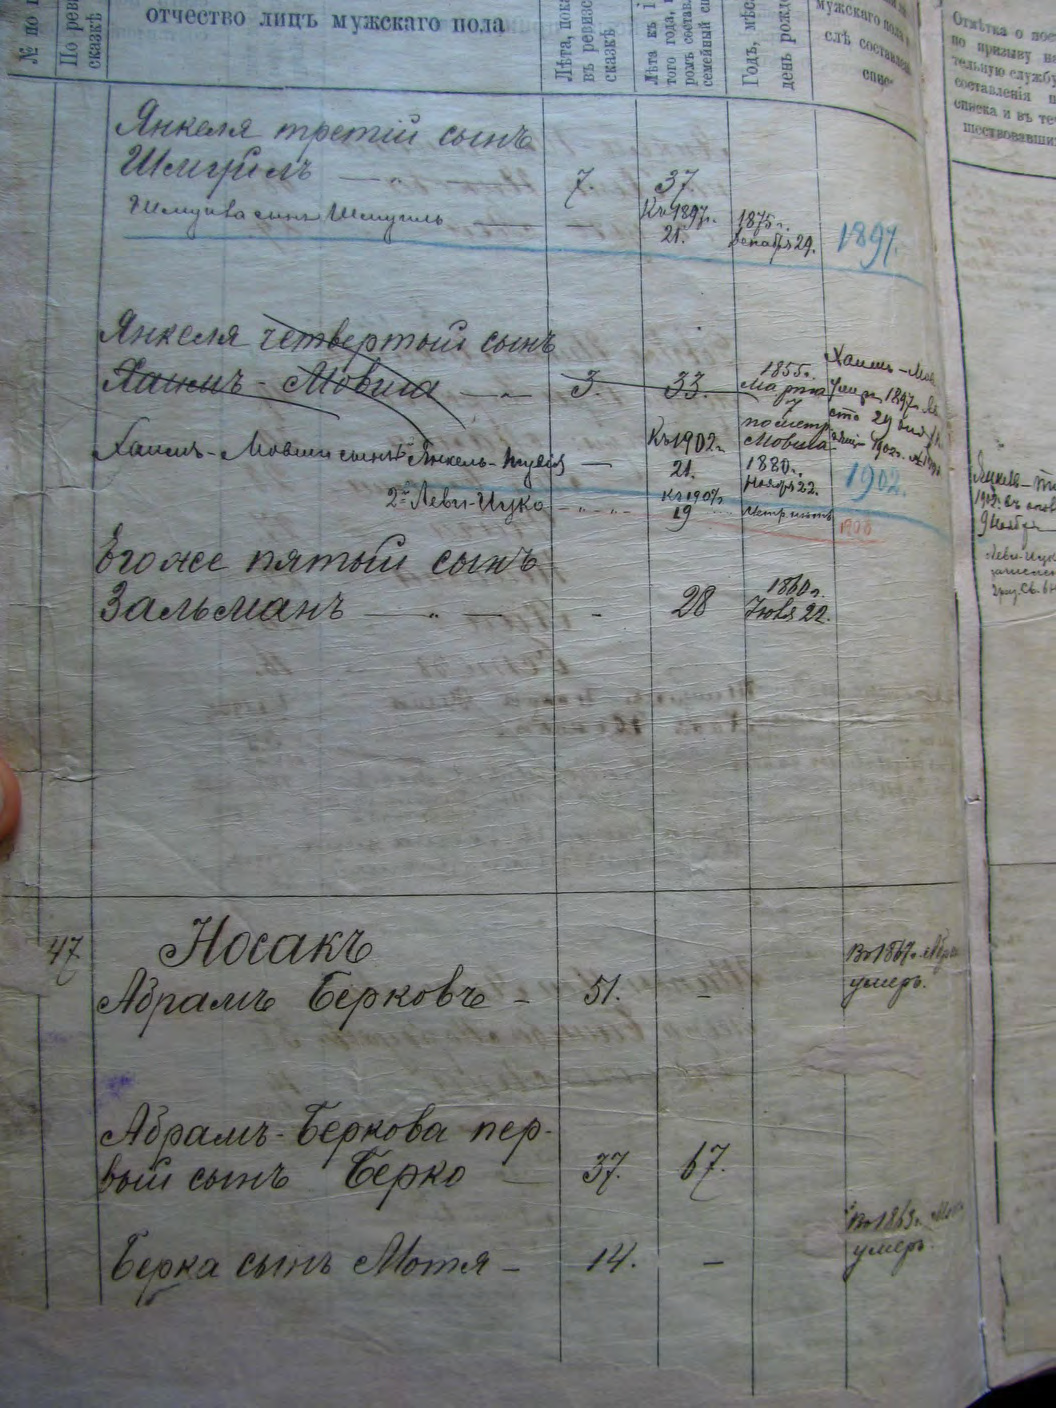 № по
По ревиз
сказкѣ
отчество лицъ мужскаго пола
Лѣта, пока
въ ревизс
сказкѣ
Лѣта къ 1
того года,
ромъ состав
семейный сп
Годъ, мѣс
день рожде
мужскаго пола
слѣ составлен
спис
Отмѣтка о пос
по призыву на
тельную службу
составленія п
списка и въ теч
шествовавши
Янкеля третій сынъ
Шмуйлъ — „ — 7. 37
Шмуйла сынъ Шмуиль Къ 1897 г. 21. 1875 г. Декабря 29. 1897.
Янкеля четвертый сынъ
Хаимъ - Мовша — „ — 3. 33. 1855 г. Марта 7 по метр. Мовша
Хаимъ - Мов
Умеръ 1897 г.
Хаимъ - Мовши сынъ 1 Янкель - — Къ 1902 г. 21. 1880 г. Ноября 22. 1902.
2й Леви-Ицко Къ 190 19 метр. 1908
Его же пятый сынъ
Зальманъ — „ — - 28 1860 г. Июля 22.
47 Носакъ
Абрамъ Берковъ - 51. - Въ 1867 г. Абр
умеръ.
Абрамъ-Беркова пер-
вый сынъ Берко 37. 67.
Берка сынъ Мотя - 14. - Въ 1863 г. Мот
умеръ.